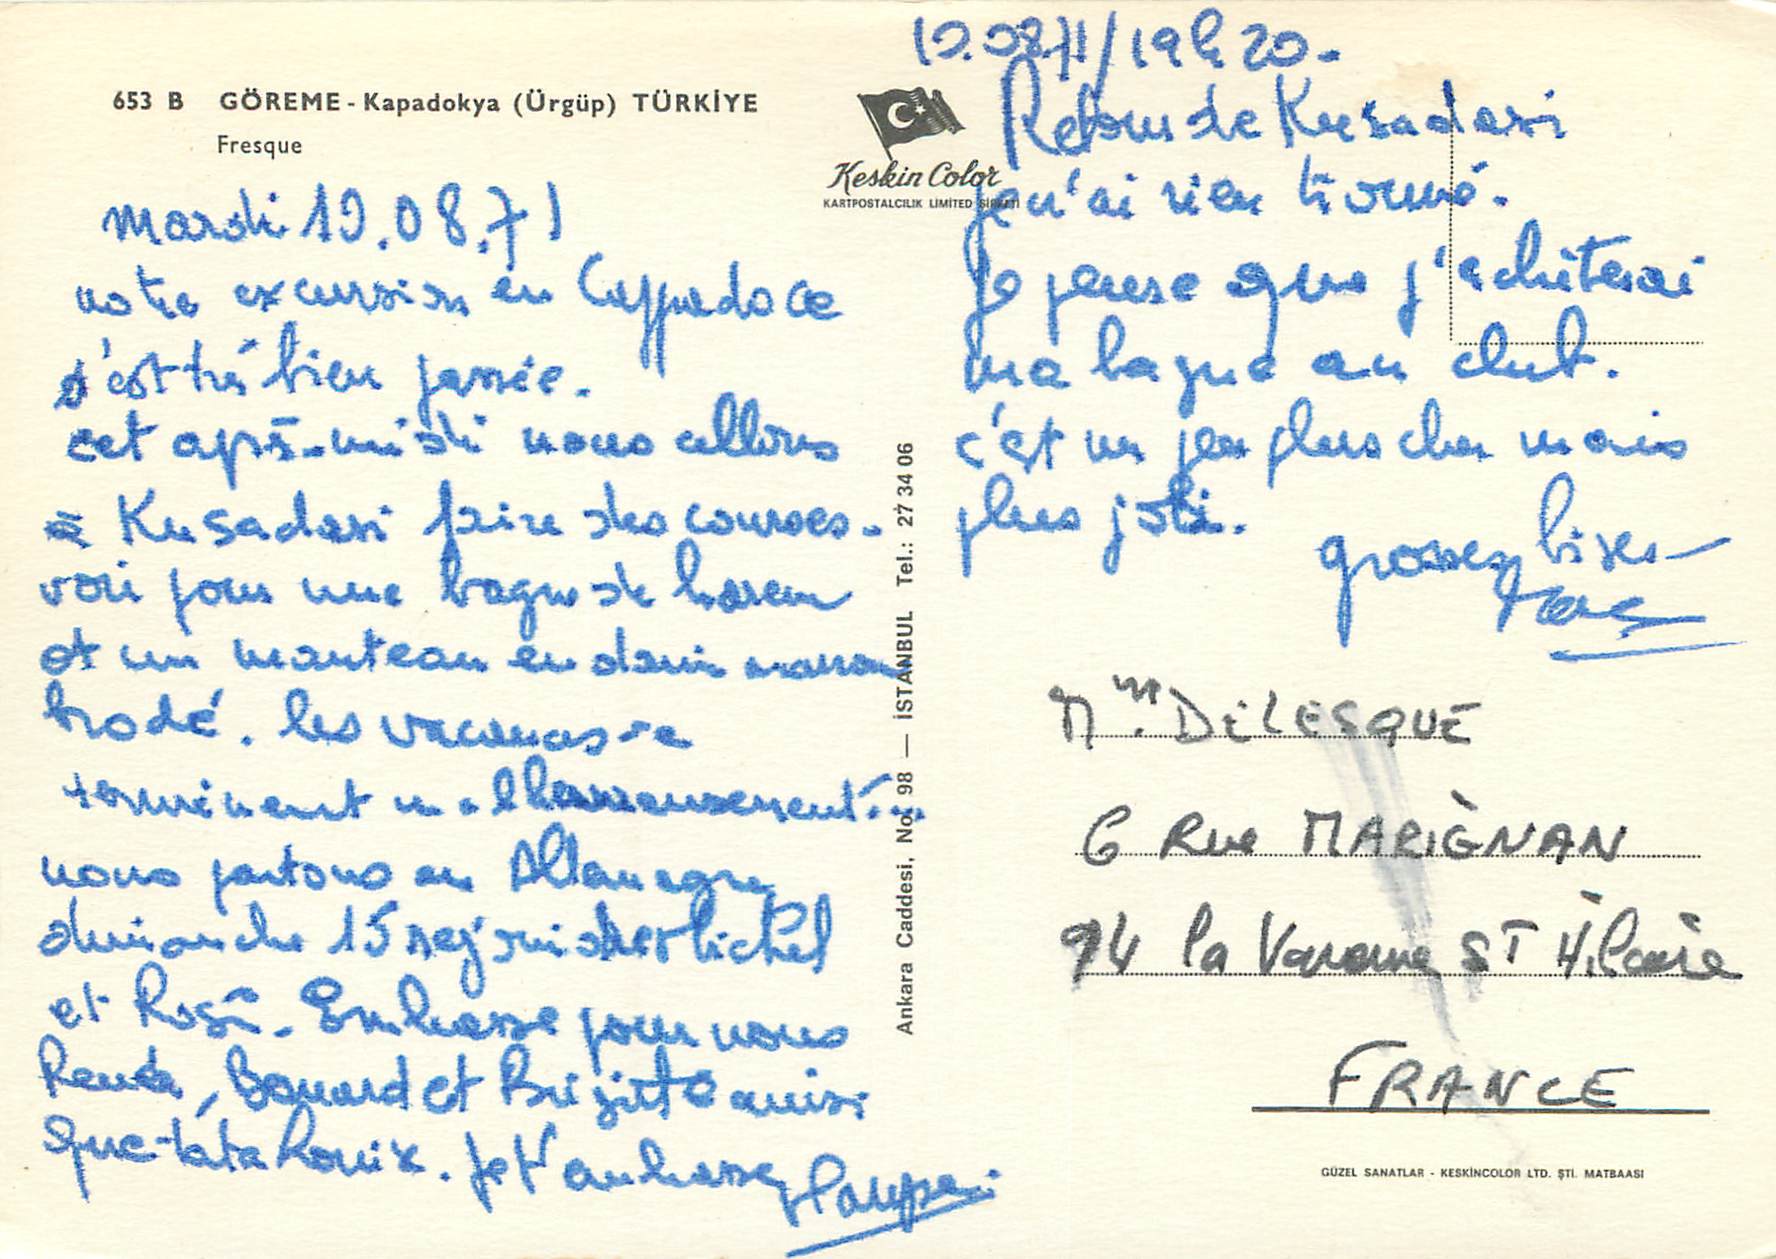 653 B GÖREME - Kapadokya (Ürgüp) TÜRKİYE
Fresque
mardi 10.08.71
notre excursion en Cappadoce
s'est très bien passée.
cet après-midi nous allons
à Kusadasi faire des courses.
voir pour une bague de harem
et un manteau en daim marron
brodé. les vacances se
terminent malheureusement...
nous partons en Allemagne
dimanche 15 rejoindre Michel
et Rosi. Embrasse pour nous
Renée, Bernard et Brigitte ainsi
que tata Louix. Je t'embrasse
10.08.71/19h20.
Retour de Kusadasi
je n'ai rien trouvé.
Je pense que j'achèterai
ma bague au club.
c'est un peu plus cher mais
plus joli.
grosses bises
Keskin Color
KARTPOSTALCILIK LIMITED ŞİRKETİ
Ankara Caddesi, No. 98 — İSTANBUL Tel.: 27 34 06
Mme DELESQUE
6 Rue MARIGNAN
94 la Varenne ST Hilaire
FRANCE
GÜZEL SANATLAR - KESKİNCOLOR LTD. ŞTİ. MATBAASI